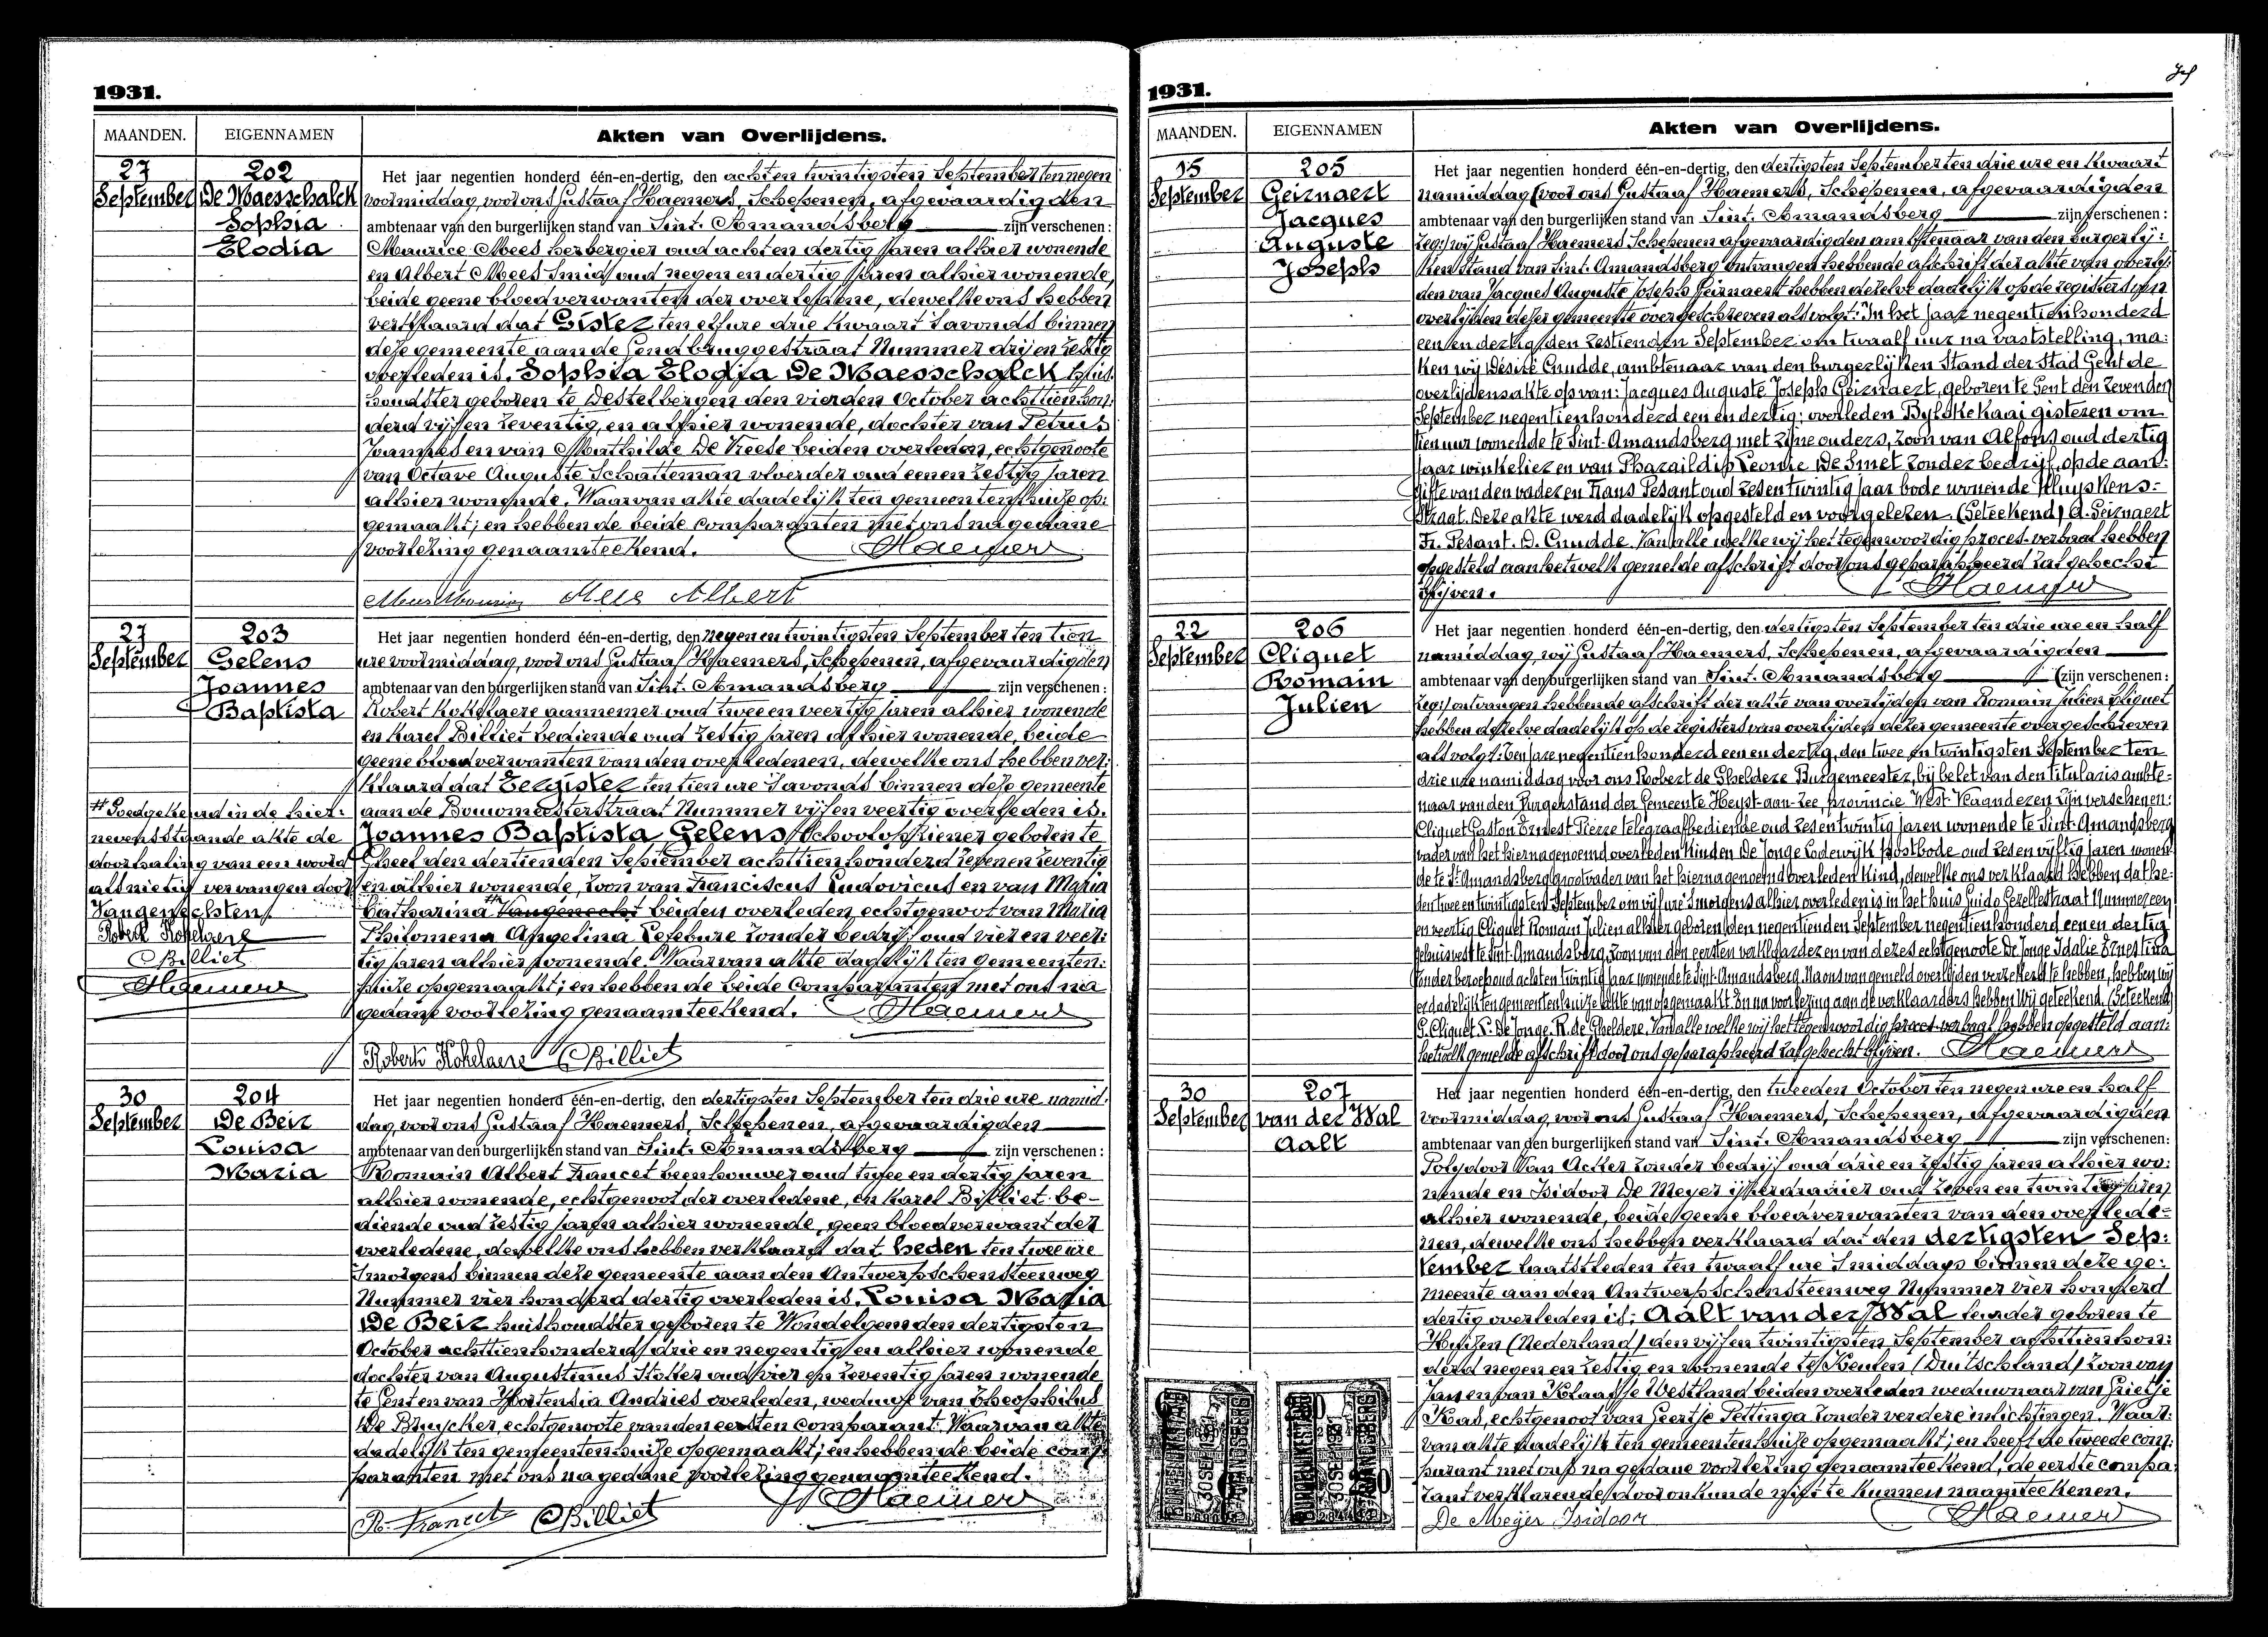 1931.
MAANDEN. EIGENNAMEN Akten van Overlijdens.
27 202 Het jaar negentien honderd één-en-dertig, den achten twintigsten September ten negen
September De Maesschalck voormiddag, voor ons Gustaaf Haemers, Schepenen, afgevaardigden
Sophia ambtenaar van den burgerlijken stand van Sint. Amandsberg zijn verschenen:
Elodia Maurice Mees herbergier oud acht en dertig jaren alhier wonende
en Albert Mees Smid oud negen en dertig jaren alhier wonende,
beide geene bloedverwanten der overledene, dewelke ons hebben
verklaard dat Gister ten elf ure drie kwaart 's avonds binnen
deze gemeente aan de Gendbruggestraat Nummer drij en zestig
overleden is. Sophia Elodia De Maesschalck huis:
houdster geboren te Destelbergen den vierden October achttienhon:
derd vijf en zeventig, en alhier wonende, dochter van Petrus
Joannes en van Mathilde De Vreese beiden overleden, echtgenoote
van Octave Auguste Schatteman vloerder oud eenen zestig jaren
alhier wonende. Waarvan akte dadelijk ten gemeentenhuize op:
gemaakt; en hebben de beide comparanten met ons na gedane
voorlezing genaamteekend. Haemers
Mees Maurice Mees Albert
27 203 Het jaar negentien honderd één-en-dertig, den negen en twintigsten September ten tien
September Gelens ure voormiddag, voor ons Gustaaf Haemers, Schepenen, afgevaardigden
Joannes ambtenaar van den burgerlijken stand van Sint. Amandsberg zijn verschenen:
Baptista Robert Kokelaere aannemer oud twee en veertig jaren alhier wonende
en Karel Billiet bediende oud zestig jaren alhier wonende, beide
geene bloedverwanten van den overledenen, dewelke ons hebben ver:
klaard dat Eergister ten tien ure 's avonds binnen deze gemeente
# Goedgekeurd in de hier: aan de Bouwmeesterstraat Nummer vijf en veertig overleden is.
nevensstaande akte de Joannes Baptista Gelens Schoolopziener geboren te
doorhaling van een woord Gheel den dertienden September achttienhonderd zeven en zeventig
als nietig vervangen door en alhier wonende, zoon van Franciscus Ludovicus en van Maria
Vangenechten. Catharina # Vangenecht beiden overleden, echtgenoot van Maria
Robert Kokelaere Philomena Angelina Lefebure zonder bedrijf oud vier en veer:
CBilliet tig jaren alhier wonende. Waarvan akte dadelijk ten gemeenten:
Haemers huize opgemaakt; en hebben de beide Comparanten met ons na
gedane voorlezing genaamteekend. Haemers
Robert Kokelaere CBilliet
30 204 Het jaar negentien honderd één-en-dertig, den dertigsten September ten drie ure namid:
September De Beir dag, voor ons Gustaaf Haemers, Schepenen, afgevaardigden
Louisa ambtenaar van den burgerlijken stand van Sint. Amandsberg zijn verschenen:
Maria Romain Albert Francet beenhouwer oud twee en dertig jaren
alhier wonende, echtgenoot der overledene, en Karel Billiet be-
diende oud zestig jaren alhier wonende, geen bloedverwant der
overledene, dewelke ons hebben verklaard dat heden ten twee ure
's morgens binnen deze gemeente aan den Antwerpschensteenweg
Nummer vier honderd dertig overleden is. Louisa Maria
De Beir huishoudster geboren te Wondelgem den dertigsten
October achttienhonderd drie en negentig en alhier wonende
dochter van Augustinus Stoker oud vier en zeventig jaren wonende
te Gent en van Hortensia Andries overleden, weduwe van Theophilus
De Bruycker, echtgenoote van den eersten comparant. Waarvan akte
dadelijk ten gemeentenhuize opgemaakt; en hebben de beide com:
paranten met ons na gedane voorlezing genaamteekend.
R. Francet CBilliet Haemers
1931.
MAANDEN. EIGENNAMEN Akten van Overlijdens.
15 205 Het jaar negentien honderd één-en-dertig, den dertigsten September ten drie ure en kwaart
September Geirnaert namiddag (voor ons Gustaaf Haemers, Schepenen, afgevaardigden
Jacques ambtenaar van den burgerlijken stand van Sint. Amandsberg zijn verschenen:
Auguste zeg:) wij Gustaaf Haemers Schepenen afgevaardigden ambtenaar van den burgerlij:
Joseph ken stand van Sint. Amandsberg ontvangen hebbende afschrift der akte van overlij:
den van Jacques Auguste Joseph Geirnaert hebben dezelve dadelijk op de registers van
overlijden dezer gemeente overgeschreven als volgt: In het jaar negentienhonderd
een en dertig den zestienden September om twaalf uur na vaststelling, ma:
ken wij Désiré Cnudde, ambtenaar van den burgerlijken Stand der Stad Gent de
overlijdensakte op van: Jacques Auguste Joseph Geirnaert, geboren te Gent den zevenden
September negentienhonderd een en dertig; overleden Bylokekaai gisteren om
tien uur wonende te Sint-Amandsberg met zijne ouders, zoon van Alfons oud dertig
jaar winkelier en van Pharaildis Leonie De Smet zonder bedrijf, op de aan:
gifte van den vader en Frans Pesant oud zes en twintig jaar bode wonende Kluyskens:
straat. Deze akte werd dadelijk opgesteld en voorgelezen. (Geteekend) A. Geirnaert
Fr. Pesant. D. Cnudde. Van alle welke wij het tegenwoordig proces-verbaal hebben
opgesteld aan hetwelk gemelde afschrift door ons geparapheerd zal gehecht
blijven. Haemers
22 206 Het jaar negentien honderd één-en-dertig, den dertigsten September ten drie ure en half
September Cliquet namiddag, wij Gustaaf Haemers, Schepenen, afgevaardigden
Romain ambtenaar van den burgerlijken stand van Sint. Amandsberg (zijn verschenen:
Julien zeg:) ontvangen hebbende afschrift der akte van overlijden van Romain Julien Cliquet
hebben dezelve dadelijk op de registers van overlijden dezer gemeente overgeschreven
als volgt: Ten jare negentienhonderd een en dertig, den twee en twintigsten September ten
drie ure namiddag voor ons Robert de Gheldere Burgemeester, bij belet van den titularis ambte:
naar van den Burgerstand der Gemeente Heyst-aan-Zee, Provincie West-Vlaanderen zijn verschenen:
Cliquet Gaston Ernest Pierre telegraafbediende oud zes en twintig jaren wonende te Sint-Amandsberg
vader van het hiernagenoemd overleden kind en De Jonge Lodewijk postbode oud zes en vijftig jaren wonen:
de te St Amandsberg Grootvader van het hiernagenoemd overleden kind, dewelke ons verklaard hebben dat he:
den twee en twintigsten September om vijf ure 's morgens alhier overleden is in het huis Guido Gezellestraat Nummer een
en veertig Cliquet Romain Julien alhier geboren den negentienden September negentienhonderd een en dertig
gehuisvest te Sint-Amandsberg, zoon van den eersten verklaarder en van dezes echtgenoote De Jonge Idalie Ernestina
zonder beroep oud acht en twintig jaar wonende te Sint-Amandsberg. Na ons van gemeld overlijden verzekerd te hebben, hebben wij
er dadelijk ten gemeentenhuize akte van opgemaakt. En na voorlezing aan de verklaarders hebben wij geteekend. (Geteekend)
G. Cliquet. L. De Jonge. R. de Gheldere. Van alle welke wij het tegenwoordig proces-verbaal hebben opgesteld aan:
hetwelk gemelde afschrift door ons geparapheerd zal gehecht blijven. Haemers
30 207 Het jaar negentien honderd één-en-dertig, den tweeden October ten negen ure en half
September van der Wal voormiddag, voor ons Gustaaf Haemers, Schepenen, afgevaardigden
Aalt ambtenaar van den burgerlijken stand van Sint. Amandsberg zijn verschenen:
Polydoor Van Acker zonder bedrijf oud drie en zestig jaren alhier wo:
nende en Isidoor De Meyer ijzerdraaier oud zeven en twintig jaren
alhier wonende, beide geene bloedverwanten van den overlede:
nen, dewelke ons hebben verklaard dat den dertigsten Sep:
tember laatstleden ten twaalf ure 's middags binnen deze ge:
meente aan den Antwerpschensteenweg Nummer vier honderd
dertig overleden is; Aalt van der Wal leurder geboren te
Huizen (Nederland) den vijf en twintigsten September achttienhon:
derd negen en zestig en wonende te Keulen (Duitschland) zoon van
Jan en van Klaasje Westland beiden overleden weduwnaar van Grietje
Kas, echtgenoot van Geertje Pettinga zonder verdere inlichtingen. Waar:
van akte dadelijk ten gemeentenhuize opgemaakt; en heeft de tweede com:
parant met ons na gedane voorlezing genaamteekend, de eerste compa:
rant verklarende door onkunde niet te kunnen naamteekenen.
De Meyer Isidoor Haemers